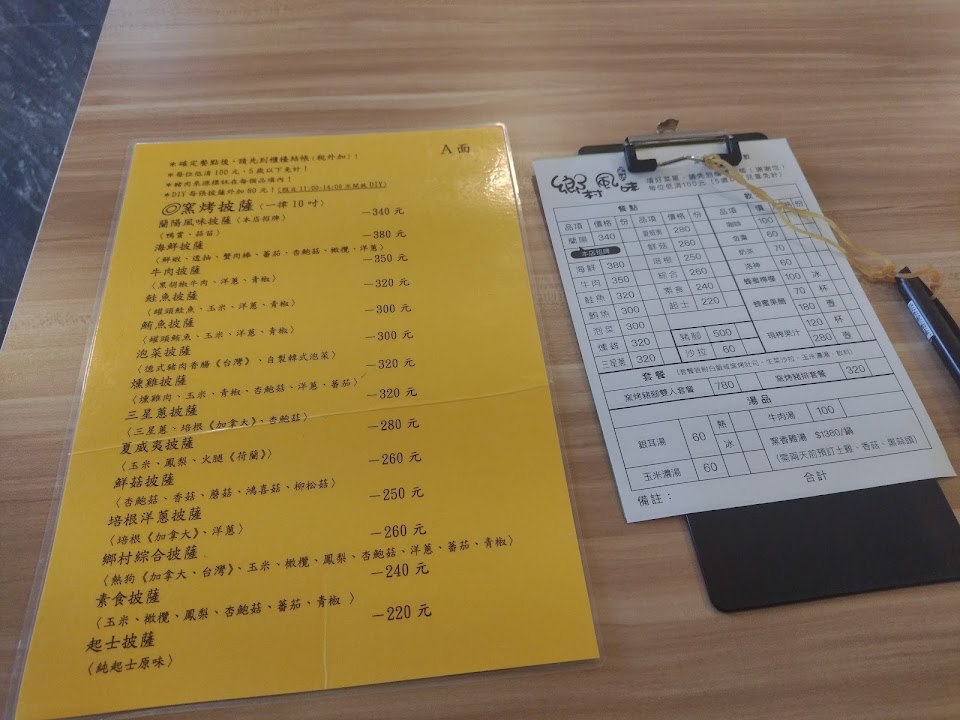 A面
*確定餐點後，請先到櫃檯結帳(稅外加)！
*每位低消100元，5歲以下免計！
*豬肉來源標註在每個品項內！
*DIY每張披薩外加80元！
◎窯烤披薩（一律10吋）
蘭陽風味披薩〈本店招牌〉 —340 元
〈鴨賞、蒜苗〉
海鮮披薩 —380 元
〈鮮蝦、透抽、蟹肉棒、蕃茄、杏鮑菇、橄欖、洋蔥〉
牛肉披薩 —350 元
〈黑胡椒牛肉、洋蔥、青椒〉
鮭魚披薩 —320 元
〈罐頭鮭魚、玉米、洋蔥、青椒〉
鮪魚披薩 —300 元
〈罐頭鮪魚、玉米、洋蔥、青椒〉
泡菜披薩 —300 元
〈德式豬肉香腸《台灣》、自製韓式泡菜〉
燻雞披薩 —320 元
〈燻雞肉、玉米、青椒、杏鮑菇、洋蔥、蕃茄〉
三星蔥披薩 —320 元
〈三星蔥、培根《加拿大》、杏鮑菇〉
夏威夷披薩 —280 元
〈玉米、鳳梨、火腿《荷蘭》〉
鮮菇披薩 —260 元
〈杏鮑菇、香菇、蘑菇、鴻喜菇、柳松菇〉
培根洋蔥披薩 —250 元
〈培根《加拿大》、洋蔥〉
鄉村綜合披薩 —260 元
〈熱狗《加拿大、台灣》、玉米、橄欖、鳳梨、杏鮑菇、洋蔥、蕃茄、青椒〉
素食披薩 —240 元
〈玉米、橄欖、鳳梨、杏鮑菇、蕃茄、青椒 〉
起士披薩 —220 元
〈純起士原味〉
鄉村風味
每位低消100元
餐點
品項 價格 份 品項 價格 份 品項 價
蘭陽 340 夏威夷 280 咖啡 100
本店招牌 鮮菇 260 60
海鮮 380 培根 250 奶茶 70
牛肉 350 綜合 260 洛神 60
鮭魚 320 素食 240 蜂蜜檸檬 100 冰
鮪魚 300 起士 220 70 杯
泡菜 300 豬腳 500 180 壺
燻雞 320 沙拉 60 120 杯
三星蔥 320 280 壺
套餐
窯烤豬腳雙人套餐 780 窯烤豬排套餐 320
湯品
銀耳湯 60 熱 冰 牛肉湯 100
玉米濃湯 60 窯香雞湯 $1380/鍋
合計
備註：